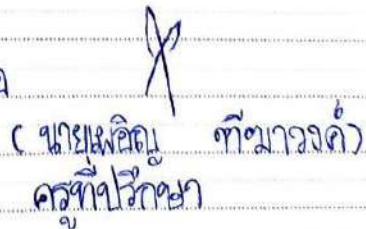 (นายเผชิญ ทีฆาวงค์)
ครูที่ปรึกษา